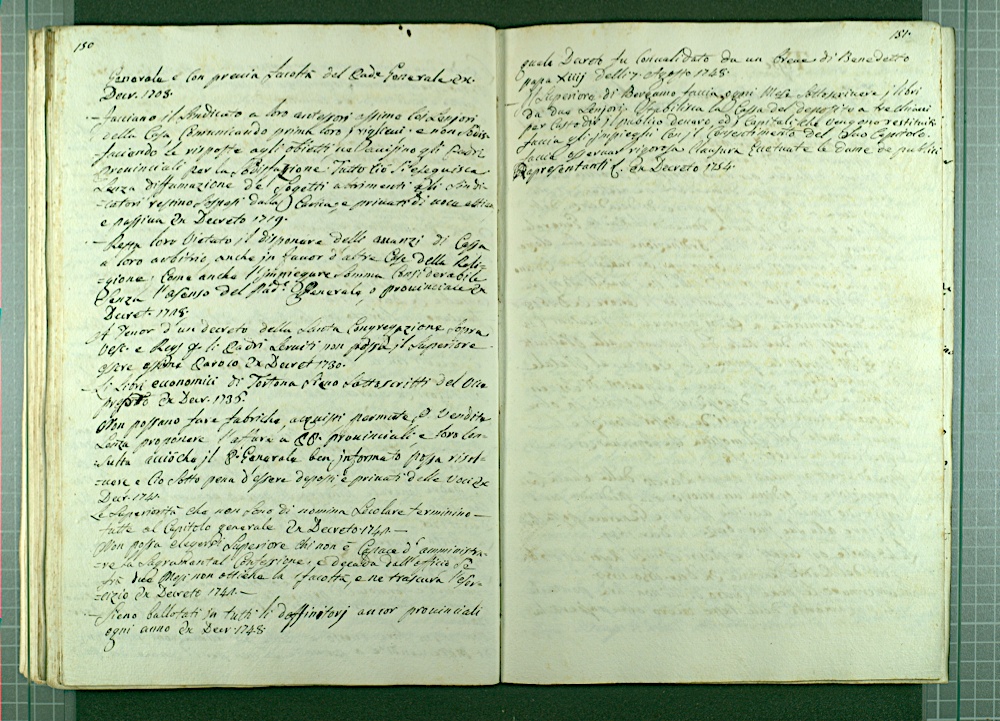 150
Generale e con previa facoltà del Padre Generale Ex
Decr. 1708.
- facciano il Sindicato a loro
della Casa Comunicando prima loro e non sodis-
facendo le risposte agli obietti gli Padri
Provinciali per la Tutto ciò si eseguisca
senza diffamazione de Sogetti altrimenti gli Sindi-
catori restino sospesi dalla Carica, e privati di voce attiva
e passiva Ex Decreto 1719.
- Resta loro Vietato il disponere delli avanzi di Cassa
a loro arbitrio, anche in favor d'altre Case della Reli-
gione, Come anche l'Impiegare somma Considerabile
senza l'Assenso del Pad.e Generale, o Provinciale Ex
Decret. 1718.
A Tenor d'un decreto della Santa Congregazione Sopra
Vesc. e Reg. li Padri non possa il Superiore
essere Paroco Ex Decret 1730.
- Li Libri economici di Tortona sieno sottoscritti del Vice
preposto Ex Decr. 1736.
Non possano fare fabriche, acquisti permute, e Vendite
senza proponere l'affare a PP. provinciali e loro Con-
sulta acciòche il P. Generale ben informato possa risol-
vere e ciò sotto pena d'essere deposti e privati delle Voci Ex
Decr. 174
Le Superiorità che non sono di nomina Secolare terminino
tutte al Capitolo generale Ex Decreto 1744
Non possa elegersi Superiore chi non è Capace d'amministra-
re la Sagramental Confessione, e decada dall'officio se
frà due Mesi non ottiene la facoltà, e ne trascura l'eser-
cizio Ex Decreto 1744
- Sieno ballotati in tutti li Deffinitorj ancor provinciali
ogni anno Ex Decr. 1748
151.
quale Decreto fu Convalidato da un Breve di Benedetto
papa XIIIJ delli 7 Agosto 1748.
- Il Superiore di Bergamo faccia ogni Mese sottoscrivere i libri
da due Stabilisca la Cassa del deposito a tre chiavi
per Custodir il publico denaro, ed i Capitali che vengono restituiti
faccia gl'impieghi con il Consentimento del suo Capitolo.
faccia osservar rigorosa Clausura Eccetuate le dame de publici
Rapresentanti Ex Decreto 1754